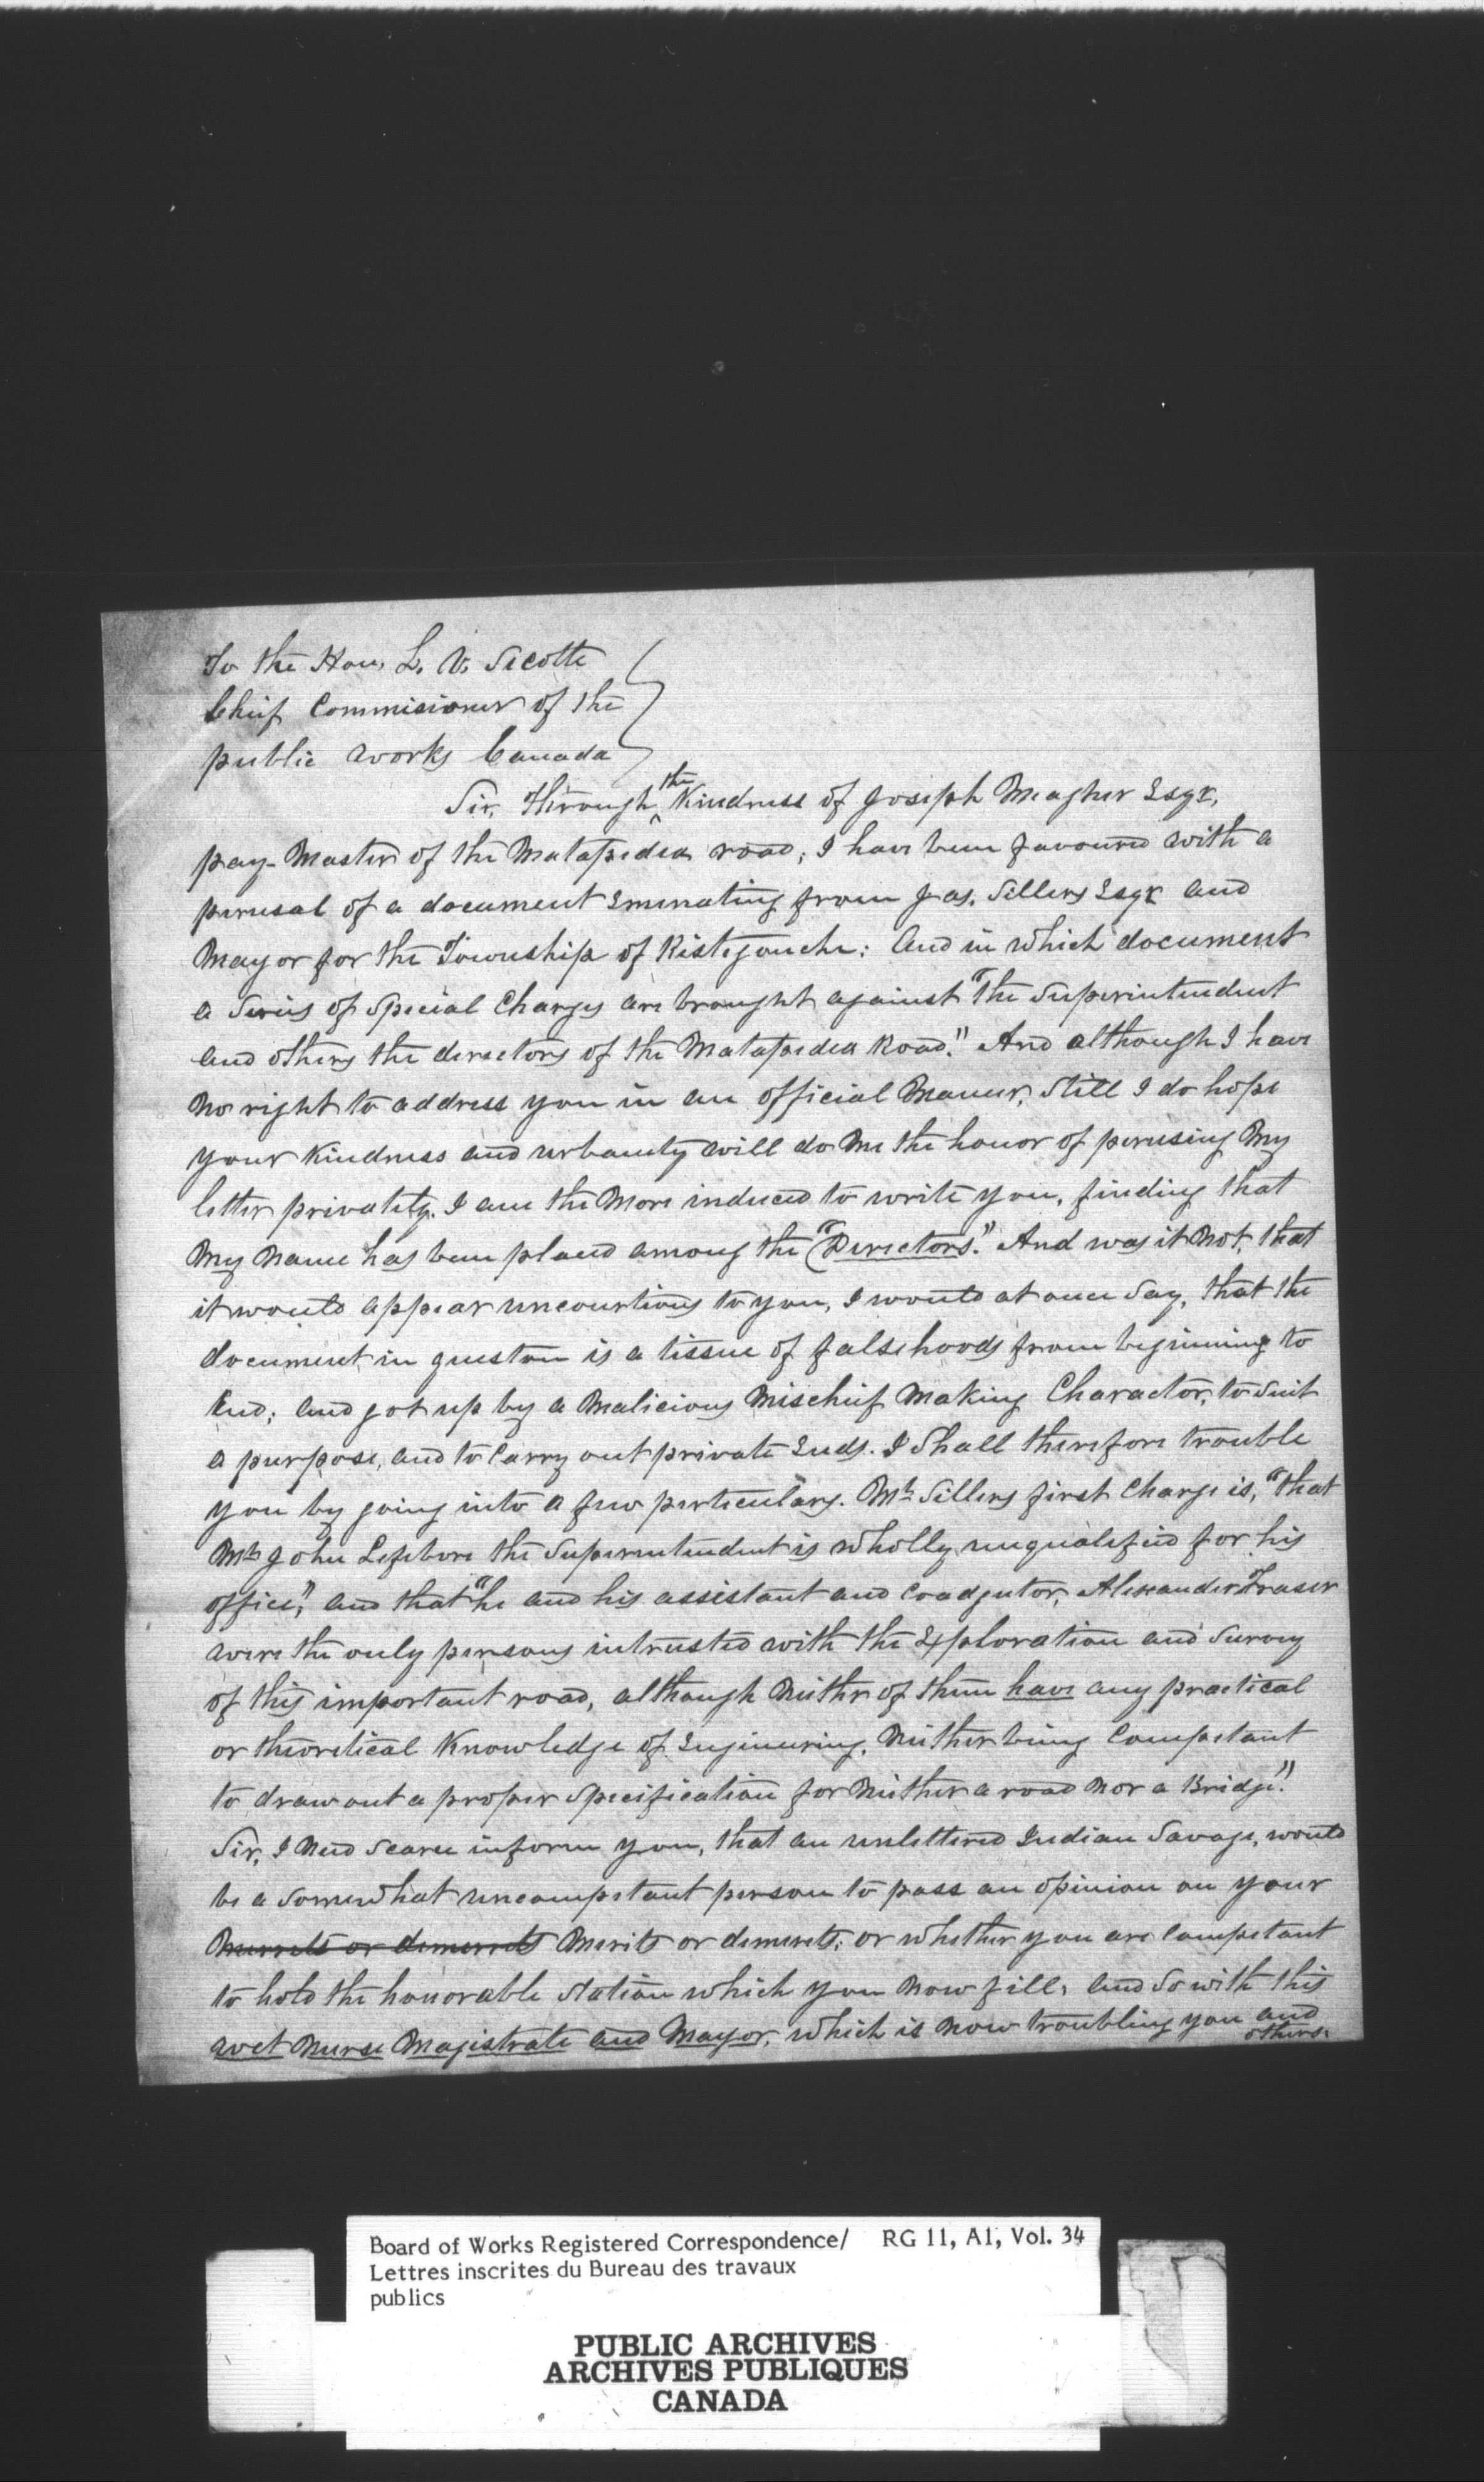 To the Hon. L. V. Sicotte
Chief Commisioner of the
public works Canada
Sir, Through the Kindness of Joseph Meagher Esqr,
pay-Master of the Matapedea road, I have been favoured with a
perusal of a document Emenating from Jas. Sillers Esqr and
Mayor for the Township of Ristegouche: And in which document
a Series of Special Charges are brought against "The Superintendent
and others the directors of the Matapedea Road." And although I have
no right to address you in an official Maner, Still I do hope
your Kindness and urbanity will do me the honor of perusing My
letter privately. I am the More induced to write you, finding that
My Name has been placed among the "Directors." And was it Not, that
it would appear uncourtious to you, I would at once Say, that the
document in queston is a tissue of falsehoods from beginning to
End; and got up by a Malicious Mischief Making Charactor, to Suit
a purpose, and to Carry out private Ends. I Shall therefore trouble
you by going into a few perticulars. Mr Sillers first Charge is, "that
Mr John Lefebvre the Superentendent is wholly unqualefied for his
office," and that "he and his assistant and Coadjutor, Alexander Fraser
were the only persons intrusted with the Exploration and Survey
of this important road, although Neither of them have any practical
or theoretical Knowledge of Engineering, Neither being Competant
to draw out a proper Specification for Neither a road Nor a Bridge."
Sir, I Need Scarce inform you, that an unlettered Indian Savage, would
be a Somewhat uncompetant person to pass an opinion on your
Merrets or demerrets Merits or demerets; or whether you are Competant
to hold the honorable Station which you Now fill, and So with this
wet Nurse Magistrate and Mayor, which is Now troubling you and
others.
Board of Works Registered Correspondence/ RG 11, A1, Vol. 34
Lettres inscrites du Bureau des travaux
publics
PUBLIC ARCHIVES
ARCHIVES PUBLIQUES
CANADA